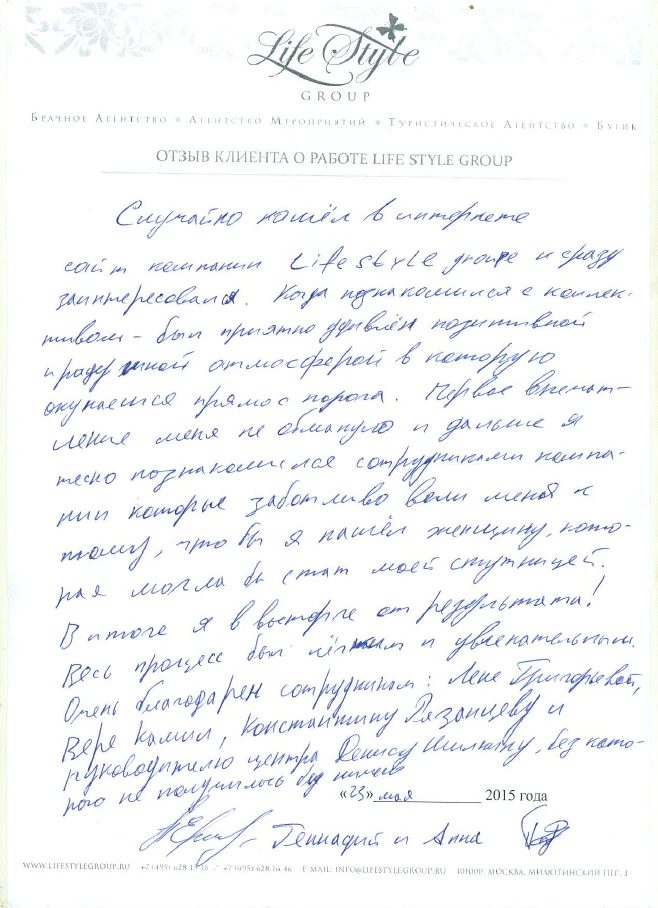 Life Style
GROUP
Брачное Агентство • Агентство Мероприятий • Туристическое Агентство • Бутик
ОТЗЫВ КЛИЕНТА О РАБОТЕ LIFE STYLE GROUP
Случайно нашёл в интернете
сайт компании Life style groupe и сразу
заинтересовался. Когда познакомился с коллек-
тивом - был приятно удивлён позитивной
и радушной атмосферой в которую
окунаешся прямо с порога. Первое впечат-
ление меня не обмануло и дальше я
тесно познакомился сотрудниками компа-
нии которые заботливо вели меня к
тому, что бы я нашёл женщину, кото-
рая могла бы стат моей спутницей.
В итоге я в восторге от результата!
Весь процесс был лёгким и увлекательным.
Очень благодарен сотрудникам: Лене Григорьевой,
Вере Камил, Константину Рязанцеву и
руководителю центра Денису Шилкину, без кото-
рого не получилось бы ничего
«23» мая 2015 года
Геннадий и Анна
WWW.LIFESTYLEGROUP.RU +7 (495) 628 15 18 / +7 (495) 628 16 46 E-MAIL: INFO@LIFESTYLEGROUP.RU 101000, МОСКВА, МИЛЮТИНСКИЙ ПЕР. 3